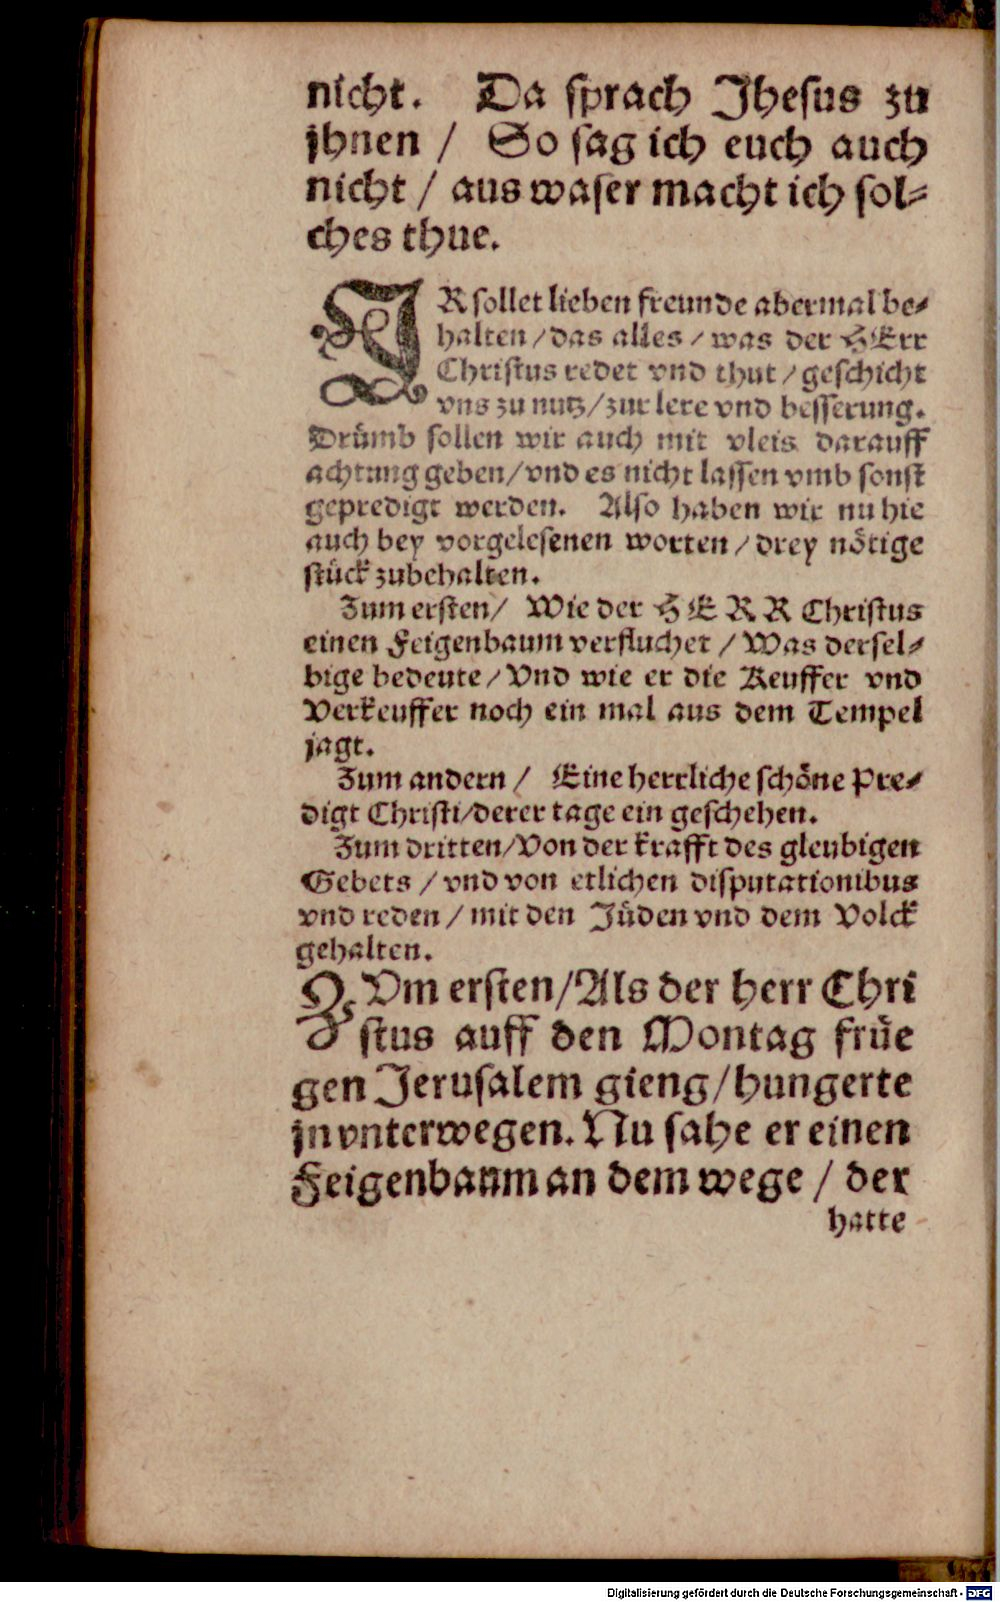 nicht. Da sprach Jhesus zu
jhnen / So sag ich euch auch
nicht / aus waser macht ich sol⸗
ches thue.
JR sollet lieben freunde abermal be⸗
halten / das alles / was der HErr
Christus redet vnd thut / geschicht
vns zu nutz / zur lere vnd besserung.
Drümb sollen wir auch mit vleis darauff
achtung geben / vnd es nicht lassen vmb sonst
gepredigt werden. Also haben wir nu hie
auch bey vorgelesenen worten / drey nötige
stück zubehalten.
Zum ersten / Wie der HERR Christus
einen Feigenbaum verfluchet / Was dersel⸗
bige bedeute / Vnd wie er die Keuffer vnd
Verkeuffer noch ein mal aus dem Tempel
jagt.
Zum andern / Eine herrliche schöne Pre⸗
digt Christi / derer tage ein geschehen.
Zum dritten / Von der krafft des gleubigen
Gebets / vnd von etlichen disputationibus
vnd reden / mit den Jüden vnd dem Volck
gehalten.
ZVm ersten / Als der herr Chri
stus auff den Montag früe
gen Jerusalem gieng / hungerte
jn vnterwegen. Nu sahe er einen
Feigenbaum an dem wege / der
hatte
Digitalisierung gefördert durch die Deutsche Forschungsgemeinschaft - DFG